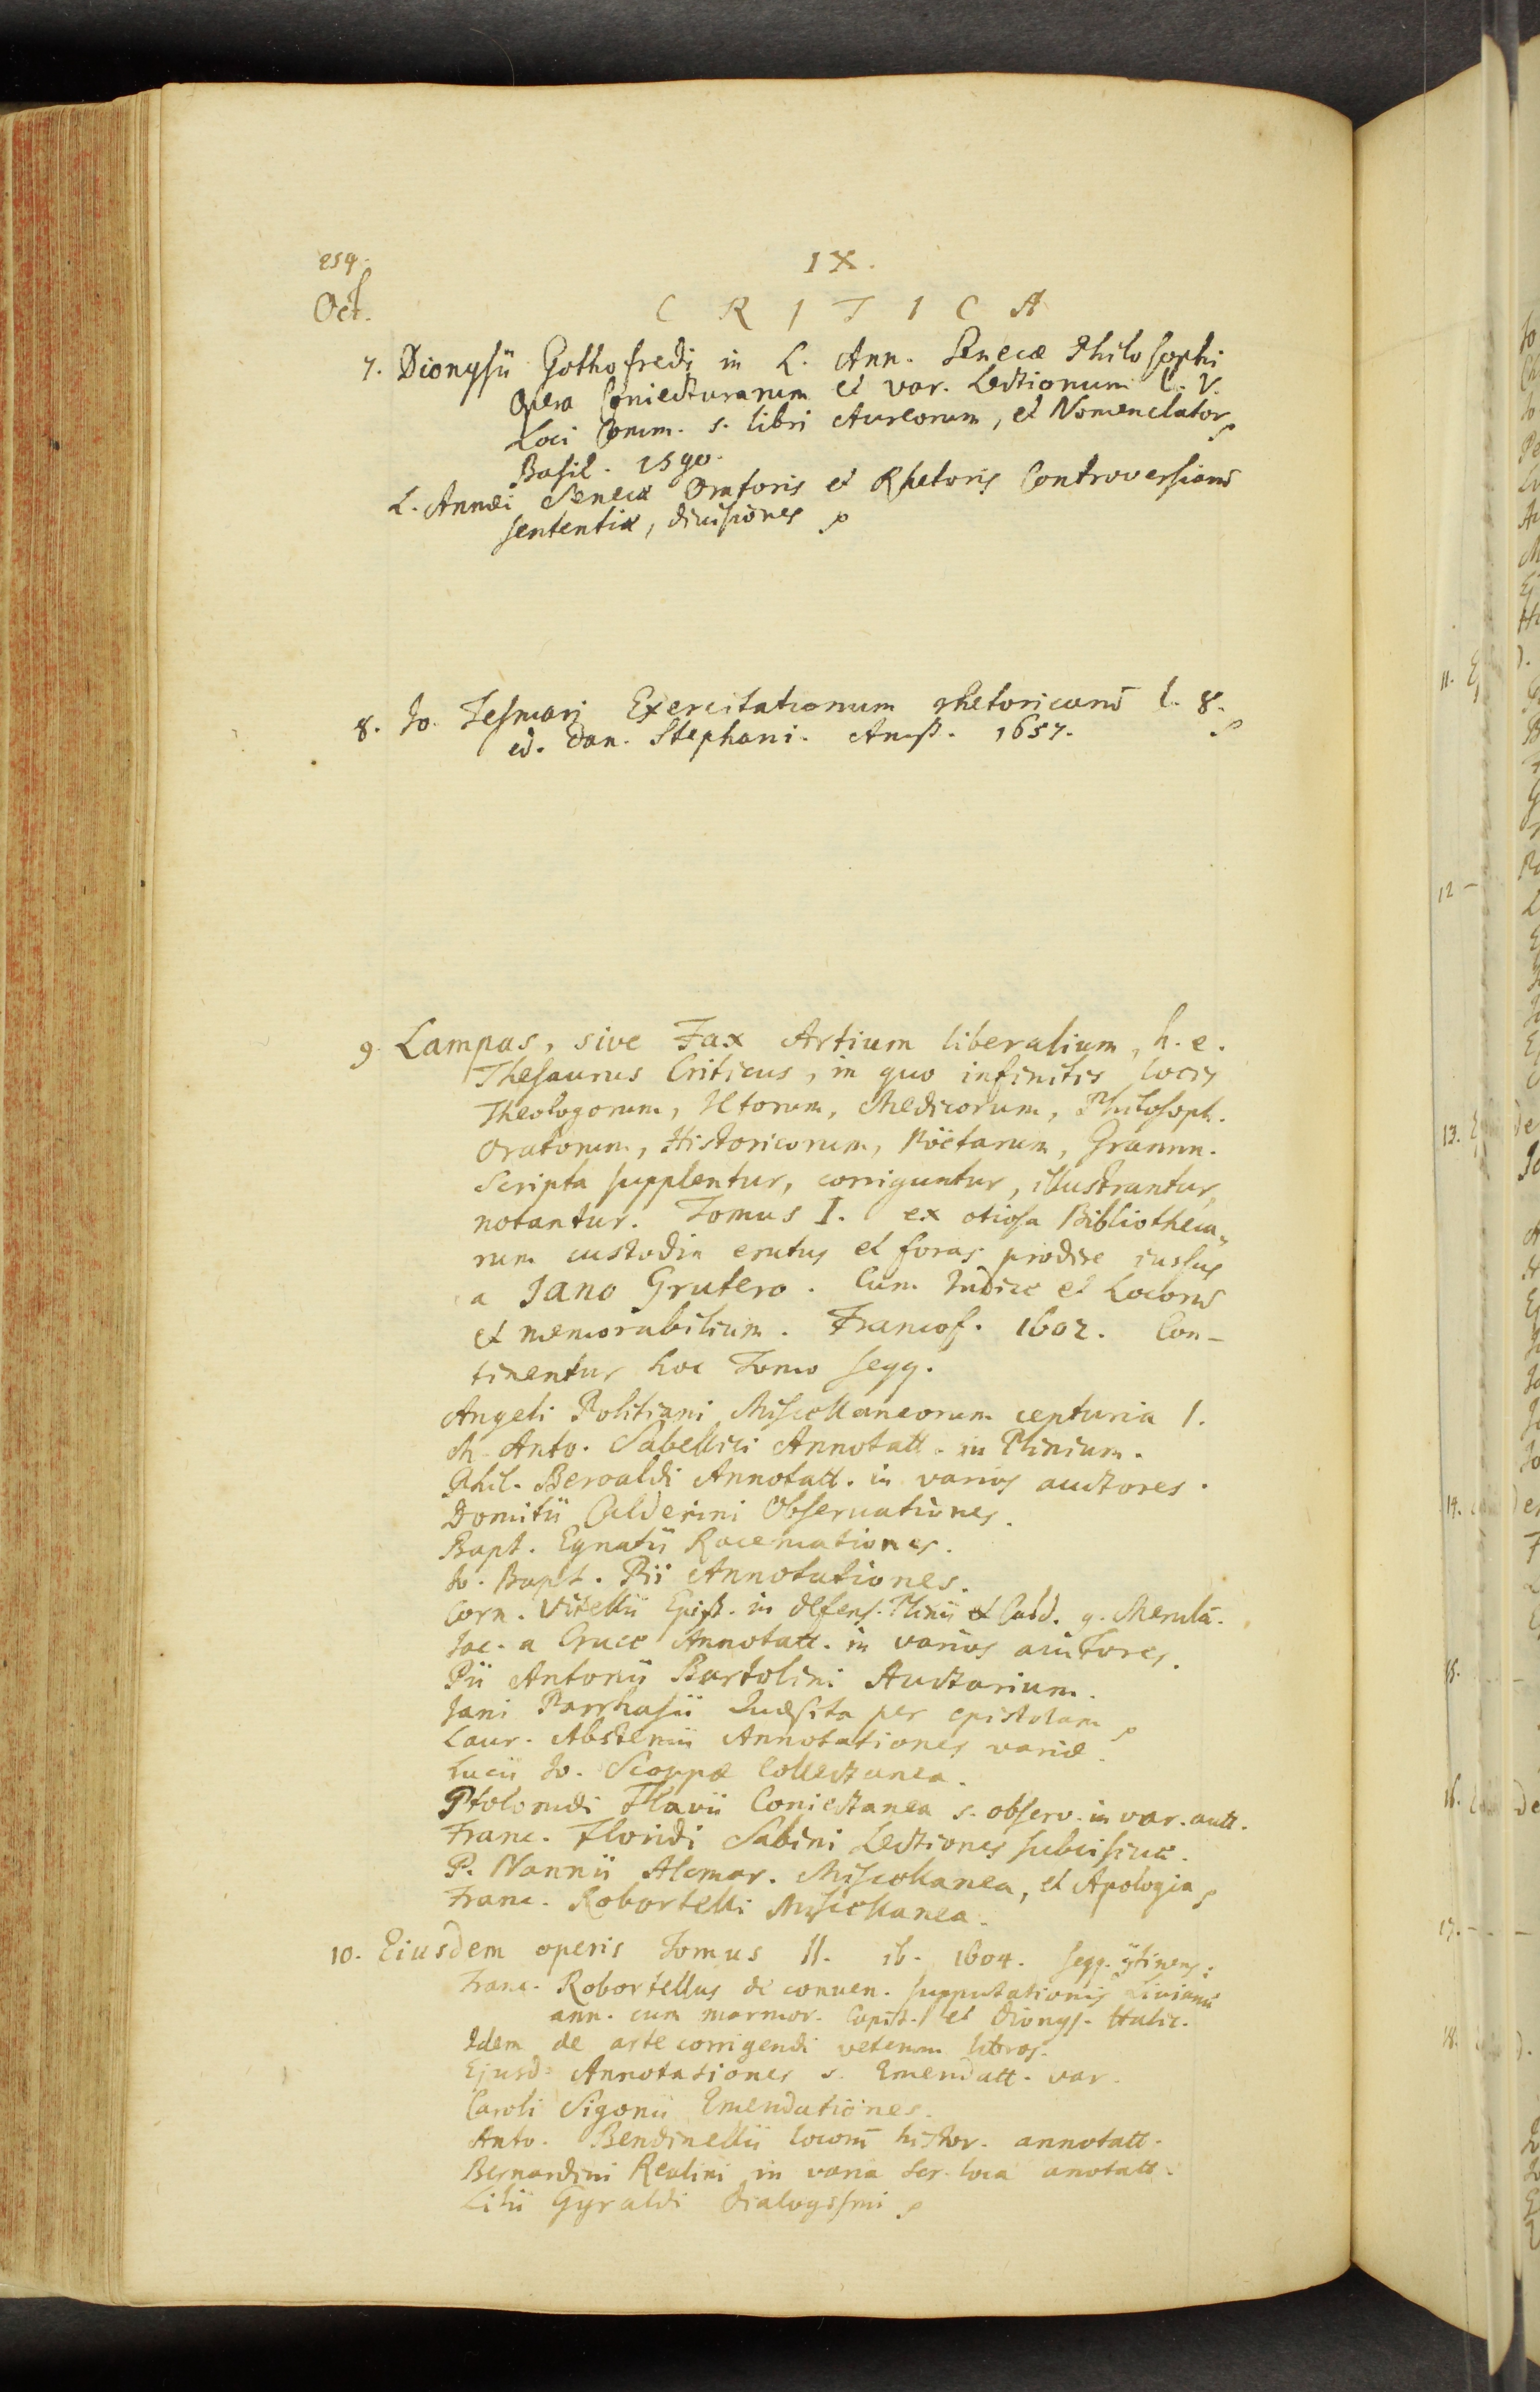 254.
IX.
Oct.
C R I T I C A
7. Dionysii Gothofredi in L. Ann. Senecæ Philosophi
Opera Coniecturarum et var. Lectionum l. V.
Loci Comm. s. libri Aureorum, et Nomenclator
Basil. 1590.
L. Annæi Senecæ Oratoris et Rhetoris Controversiarũ
sententiæ, divisiones
8. Jo. Tesmari Exercitationum rhetoricarũ l. 8.
ed. Dan. Stephani. Amst. 1657.
9. Lampas, sive Fax Artium liberalium, h. e.
Thesaurus Criticus, in quo infinitis locis
Theologorum, JCtorum, Medicorum, Philosoph.
Oratorum, Historicorum, Poëtarum, Gramm.
Scripta supplentur, corriguntur, illustrantur,
notantur. Tomus I. ex otiosa Bibliotheca„
rum custodia erutus et foras prodire iussus
a Jano Grutero. Cum Indice et Locorũ
et memorabilium. Francof. 1602. Con-
tinentur hoc Tomo seqq.
Angeli Politiani Miscellaneorum centuria I.
M. Anto. Sabellici Annotatt. in Plinium.
Phil. Beroaldi Annotatt. in varios auctores.
Domitii Calderini Observationes.
Bapt. Egnatii Racemationes.
Jo. Bapt. Pii Annotationes.
Corn. Vitellii Epist. in defens. Plinii et Cald. g. Merulã.
Jac. a Cruce Annotatt. in varios auctores.
Pii Antonii Bartolini Auctarium.
Jani Parrhasii Quæsita per epistolam
Laur. Abstemii Annotationes variæ.
Lucii Jo. Scoppæ Collectanea.
Ptolomæi Flavii Coniectanea s. observ. in var. autt.
Franc. Floridi Sabini Lectiones subcisivæ.
P. Nannii Alcmar. Miscellanea, et Apologia
Franc. Robortelli Miscellanea.
10. Eiusdem operis Tomus II. ib. 1604. seqq. gtinens:
Franc. Robortellus de conven. supputationis Livianæ
ann. cum marmor. Capit. et Dionys. Halic.
Idem de arte corrigendi veterum libros.
Ejusd. Annotationes s. Emendatt. var.
Caroli Sigonii Emendationes.
Anto. Bendinellii locorũ histor. annotatt.
Bernardini Realini in varia scr. loca anotatt.
Lilii Gyraldi Dialogismi
11.
12 -
13.
14.
15.
16.
17. -
18.